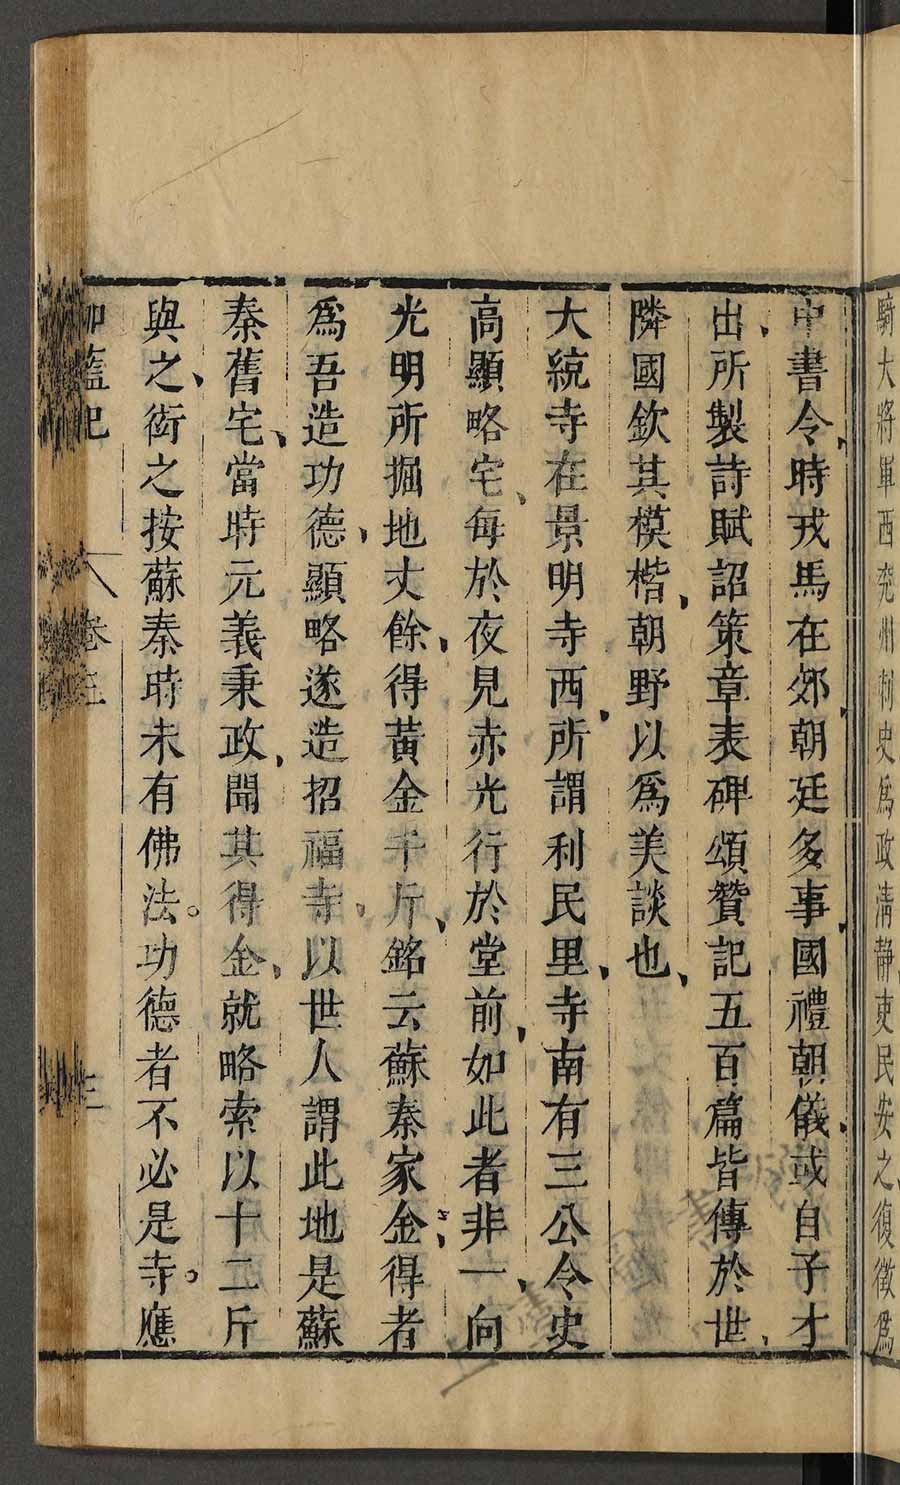 騎大將軍西兖州刺史爲政清靜吏民安之復徵爲
中書令時戎馬在郊朝廷多事國禮朝儀或自子才
出所製詩賦詔策章表碑頌贊記五百篇皆傳於世
隣國欽其模楷朝野以爲美談也
大統寺在景明寺西所謂利民里寺南有三公令史
高顯略宅每於夜見赤光行於堂前如此者非一向
光明所掘地丈餘得黃金千斤銘云蘇秦家金得者
爲吾造功德顯略遂造招福寺以世人謂此地是蘇
秦舊宅當時元義秉政聞其得金就略索以十二斤
與之衒之按蘇秦時未有佛法。功德者不必是寺。應
伽藍記 卷三 三